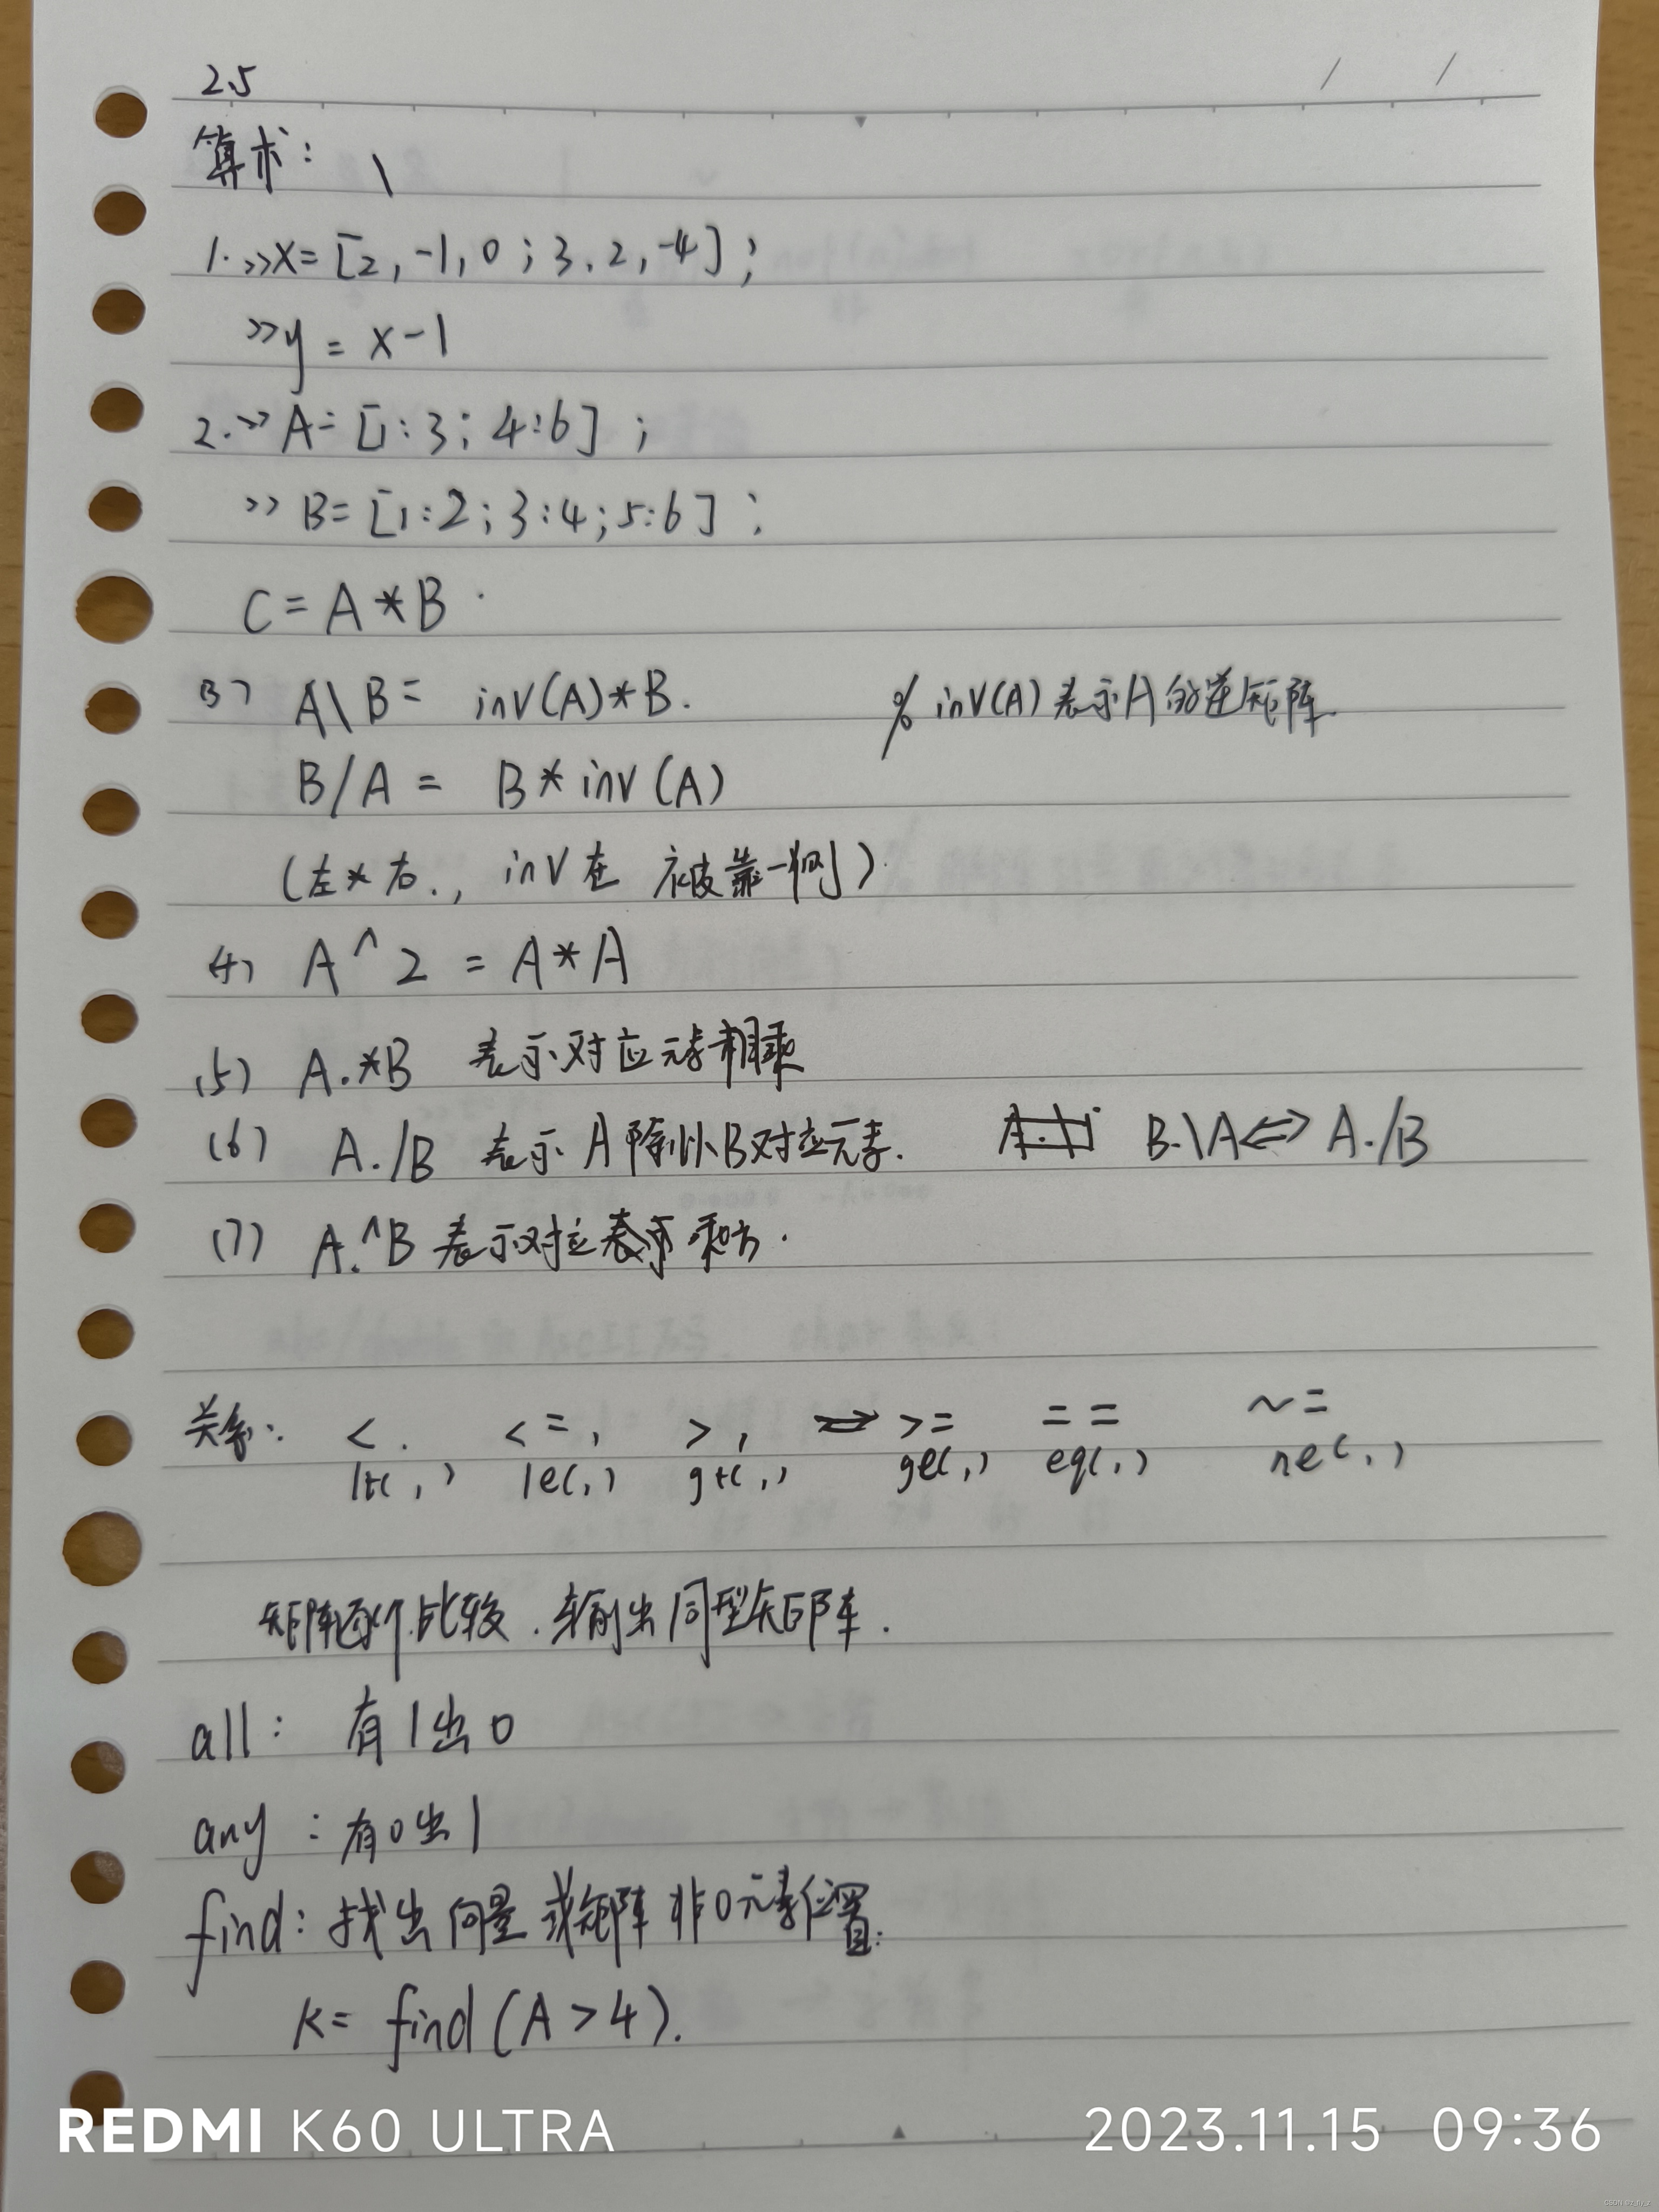 2.5
算术: \
1. >>x= [2, -1, 0 ; 3, 2, -4] ;
>>y = x-1
2. >> A= [1:3; 4:6] ;
>> B= [1:2; 3:4; 5:6] ;
C = A * B
(3) A\B= inv(A)*B. % inv(A) 表示A的逆矩阵.
B/A = B * inv(A)
(左*右., inv在 被靠一侧)
(4) A^2 = A*A
(5) A.*B 表示对应元素相乘
(6) A./B 表示A除以B对应元素. B.\A⇔A./B
(7) A.^B 表示对应 乘方.
关系: < . <=, > , >= == ~=
lt(,) le(,) gt(,) ge(,) eq(,) ne(,)
矩阵逐个比较.输出同型矩阵.
all: 有1出0
any : 有0出1
find: 找出向量或矩阵非0元素位置.
K= find(A>4).
REDMI K60 ULTRA 2023.11.15 09:36